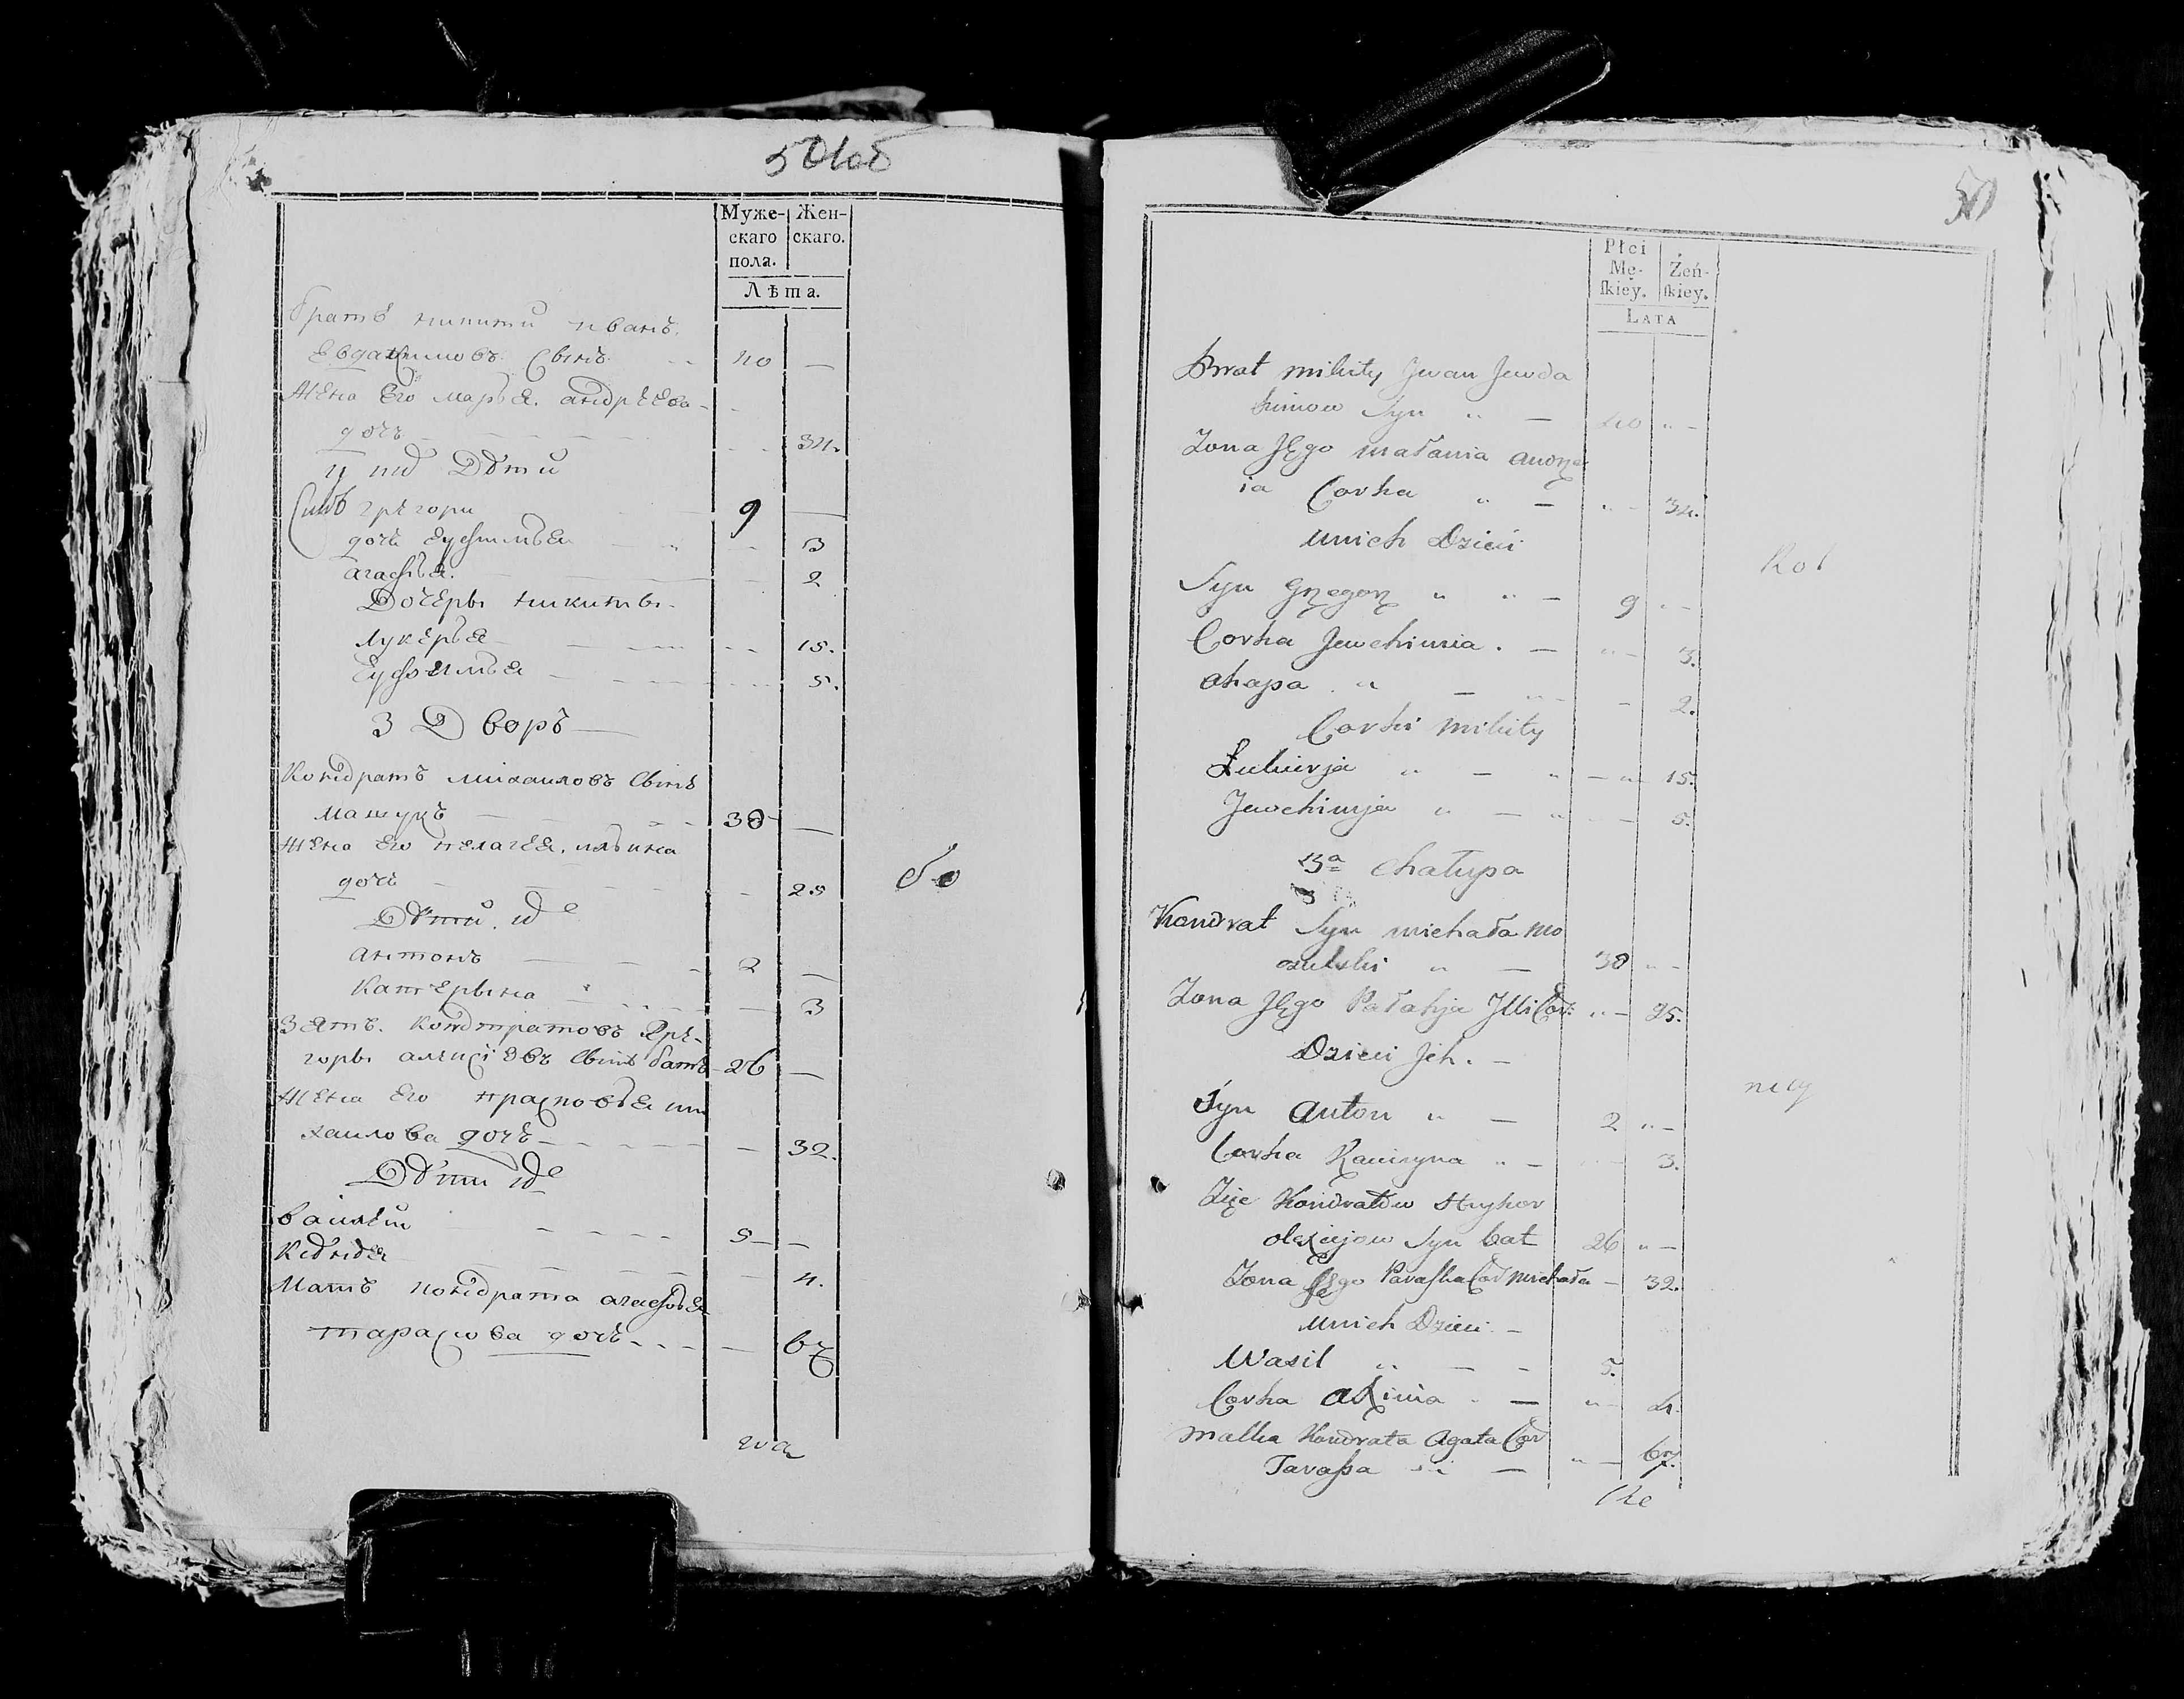 50 об
Муже- Жен-
скаго скаго.
пола.
Лѣта.
братъ никиты иванъ
Евдакимовъ Сынъ 40 —
жена Его марья андрѣева
дочь 34.
у них Дѣти
Сынъ грегори 9 —
дочь Еуфимья 3
агафья 2
Дочеры никиты
лукерья 15.
Еуфимья 5.
3 Дворъ
Кондратъ михаиловъ Сынъ
38 —
жена Его пелагея ильина
дочь 25
Дѣти их
антонъ 2 —
катерына 3
Зять кондратовъ Гре-
горы алексіевъ Сынъ бать 26 —
жена Его прасковья ми
хаилова дочь 32.
Дѣти их
василий 5 —
4.
мать кондрата агафья
тарасова дочь 67
50
Płci
Mę- Żeń-
ſkiey. ſkiey.
LATA
Brat mikity Jwan Jewda
kimow Syn „ — 40 „ —
Zona Jęgo małania andrze
ia Corka „ — „ — 34.
unich Dzieci
Syn Grzegorz „ „ — 9 „ —
Corka Jewchimia . — „ — 3.
ahapa „ — 2.
Corki mikity
Łukirja „ — „ — „ — 15.
Jewchimja „ — „ — 5.
3a Chałupa
Kondrat Syn michała mo
„ — 38 „ —
Zona Jęgo Pałahja Jlli Cor: „ — 25.
Dzieci Jch. —
Syn anton „ — 2 „ —
Corka Katiryna „ — 3.
Zięć Kondratów Hryhor
olexiejow Syn bat 26 „ —
Zona Jęgo Paraſka Cor michała — 32.
unich Dzieci —
Wasil „ — - 5.
Corka axinia . — „ — 4.
matka Kondrata agata Cor
Taraſa — „ — 67.